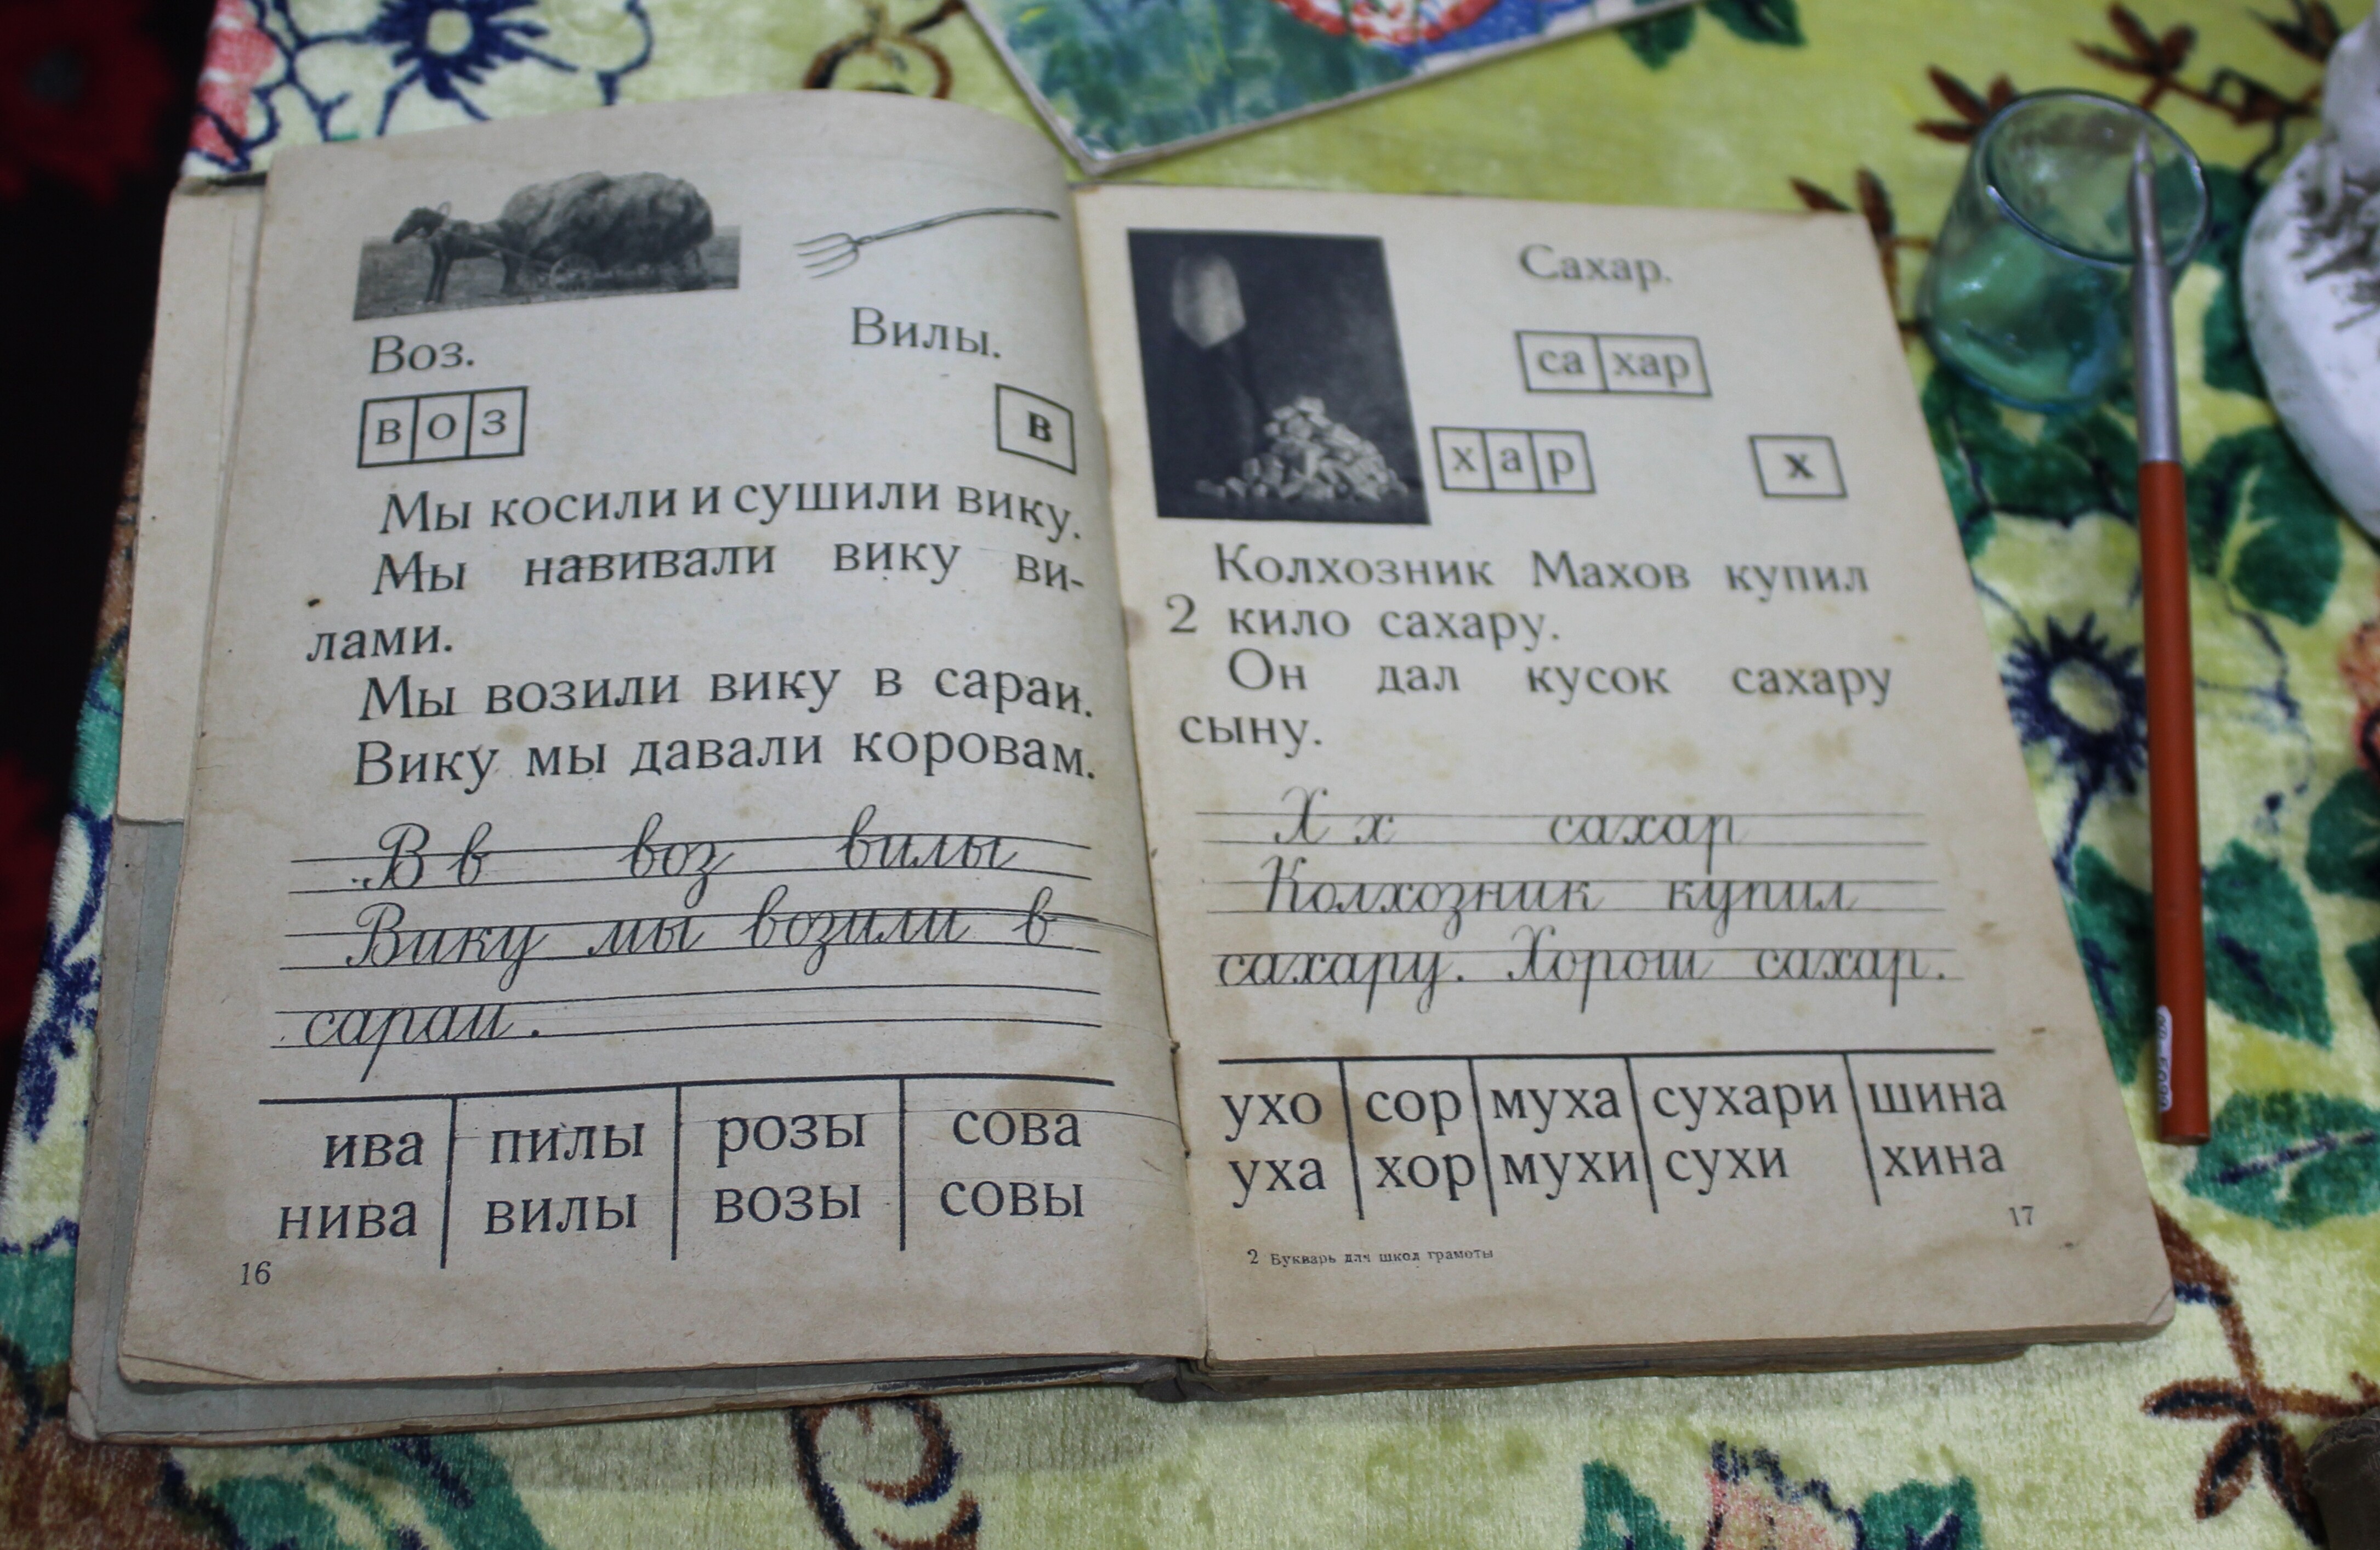 Воз.
Вилы.
в о з
в
Мы косили и сушили вику.
Мы навивали вику ви-
лами.
Мы возили вику в сараи.
Вику мы давали коровам.
В в воз вилы
Вику мы возили в
сараи.
ива пилы розы сова
нива вилы возы совы
16
Сахар.
са хар
х а р
х
Колхозник Махов купил
2 кило сахару.
Он дал кусок сахару
сыну.
Х х сахар
Колхозник купил
сахару. Хорош сахар.
ухо сор муха сухари шина
уха хор мухи сухи хина
17
2 Букварь для школ грамоты